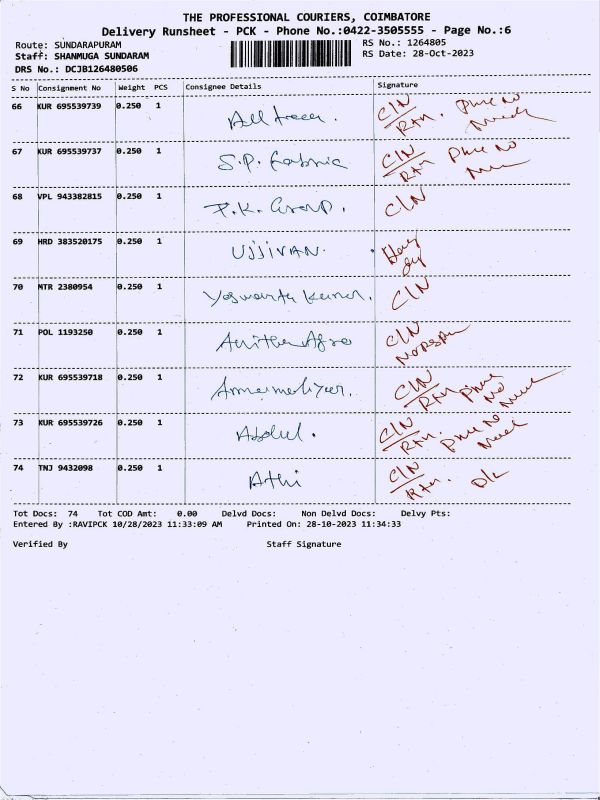 THE PROFESSIONAL COURIERS, COIMBATORE
Delivery Runsheet - PCK - Phone No.:0422-3505555 - Page No.:6
Route: SUNDARAPURAM RS No.: 1264805
Staff: SHANMUGA SUNDARAM RS Date: 28-Oct-2023
DRS No.: DCJB126480506
S No Consignment No Weight PCS Consignee Details Signature
66 KUR 695539739 0.250 1 C/N
Rtn.
67 KUR 695539737 0.250 1 S.P. Fabric C/N
Rtn
68 VPL 943382815 0.250 1 P.K. Group. C/N
69 HRD 383520175 0.250 1 UJJIVAN.
70 MTR 2380954 0.250 1 C/N
71 POL 1193250 0.250 1 Anitha Agro C/N
72 KUR 695539718 0.250 1 C/N
Rtn
73 KUR 695539726 0.250 1 Abdul. C/N
Rtn.
74 TNJ 9432098 0.250 1 Athi C/N
Rtn. D/L
Tot Docs: 74 Tot COD Amt: 0.00 Delvd Docs: Non Delvd Docs: Delvy Pts:
Entered By :RAVIPCK 10/28/2023 11:33:09 AM Printed On: 28-10-2023 11:34:33
Verified By Staff Signature